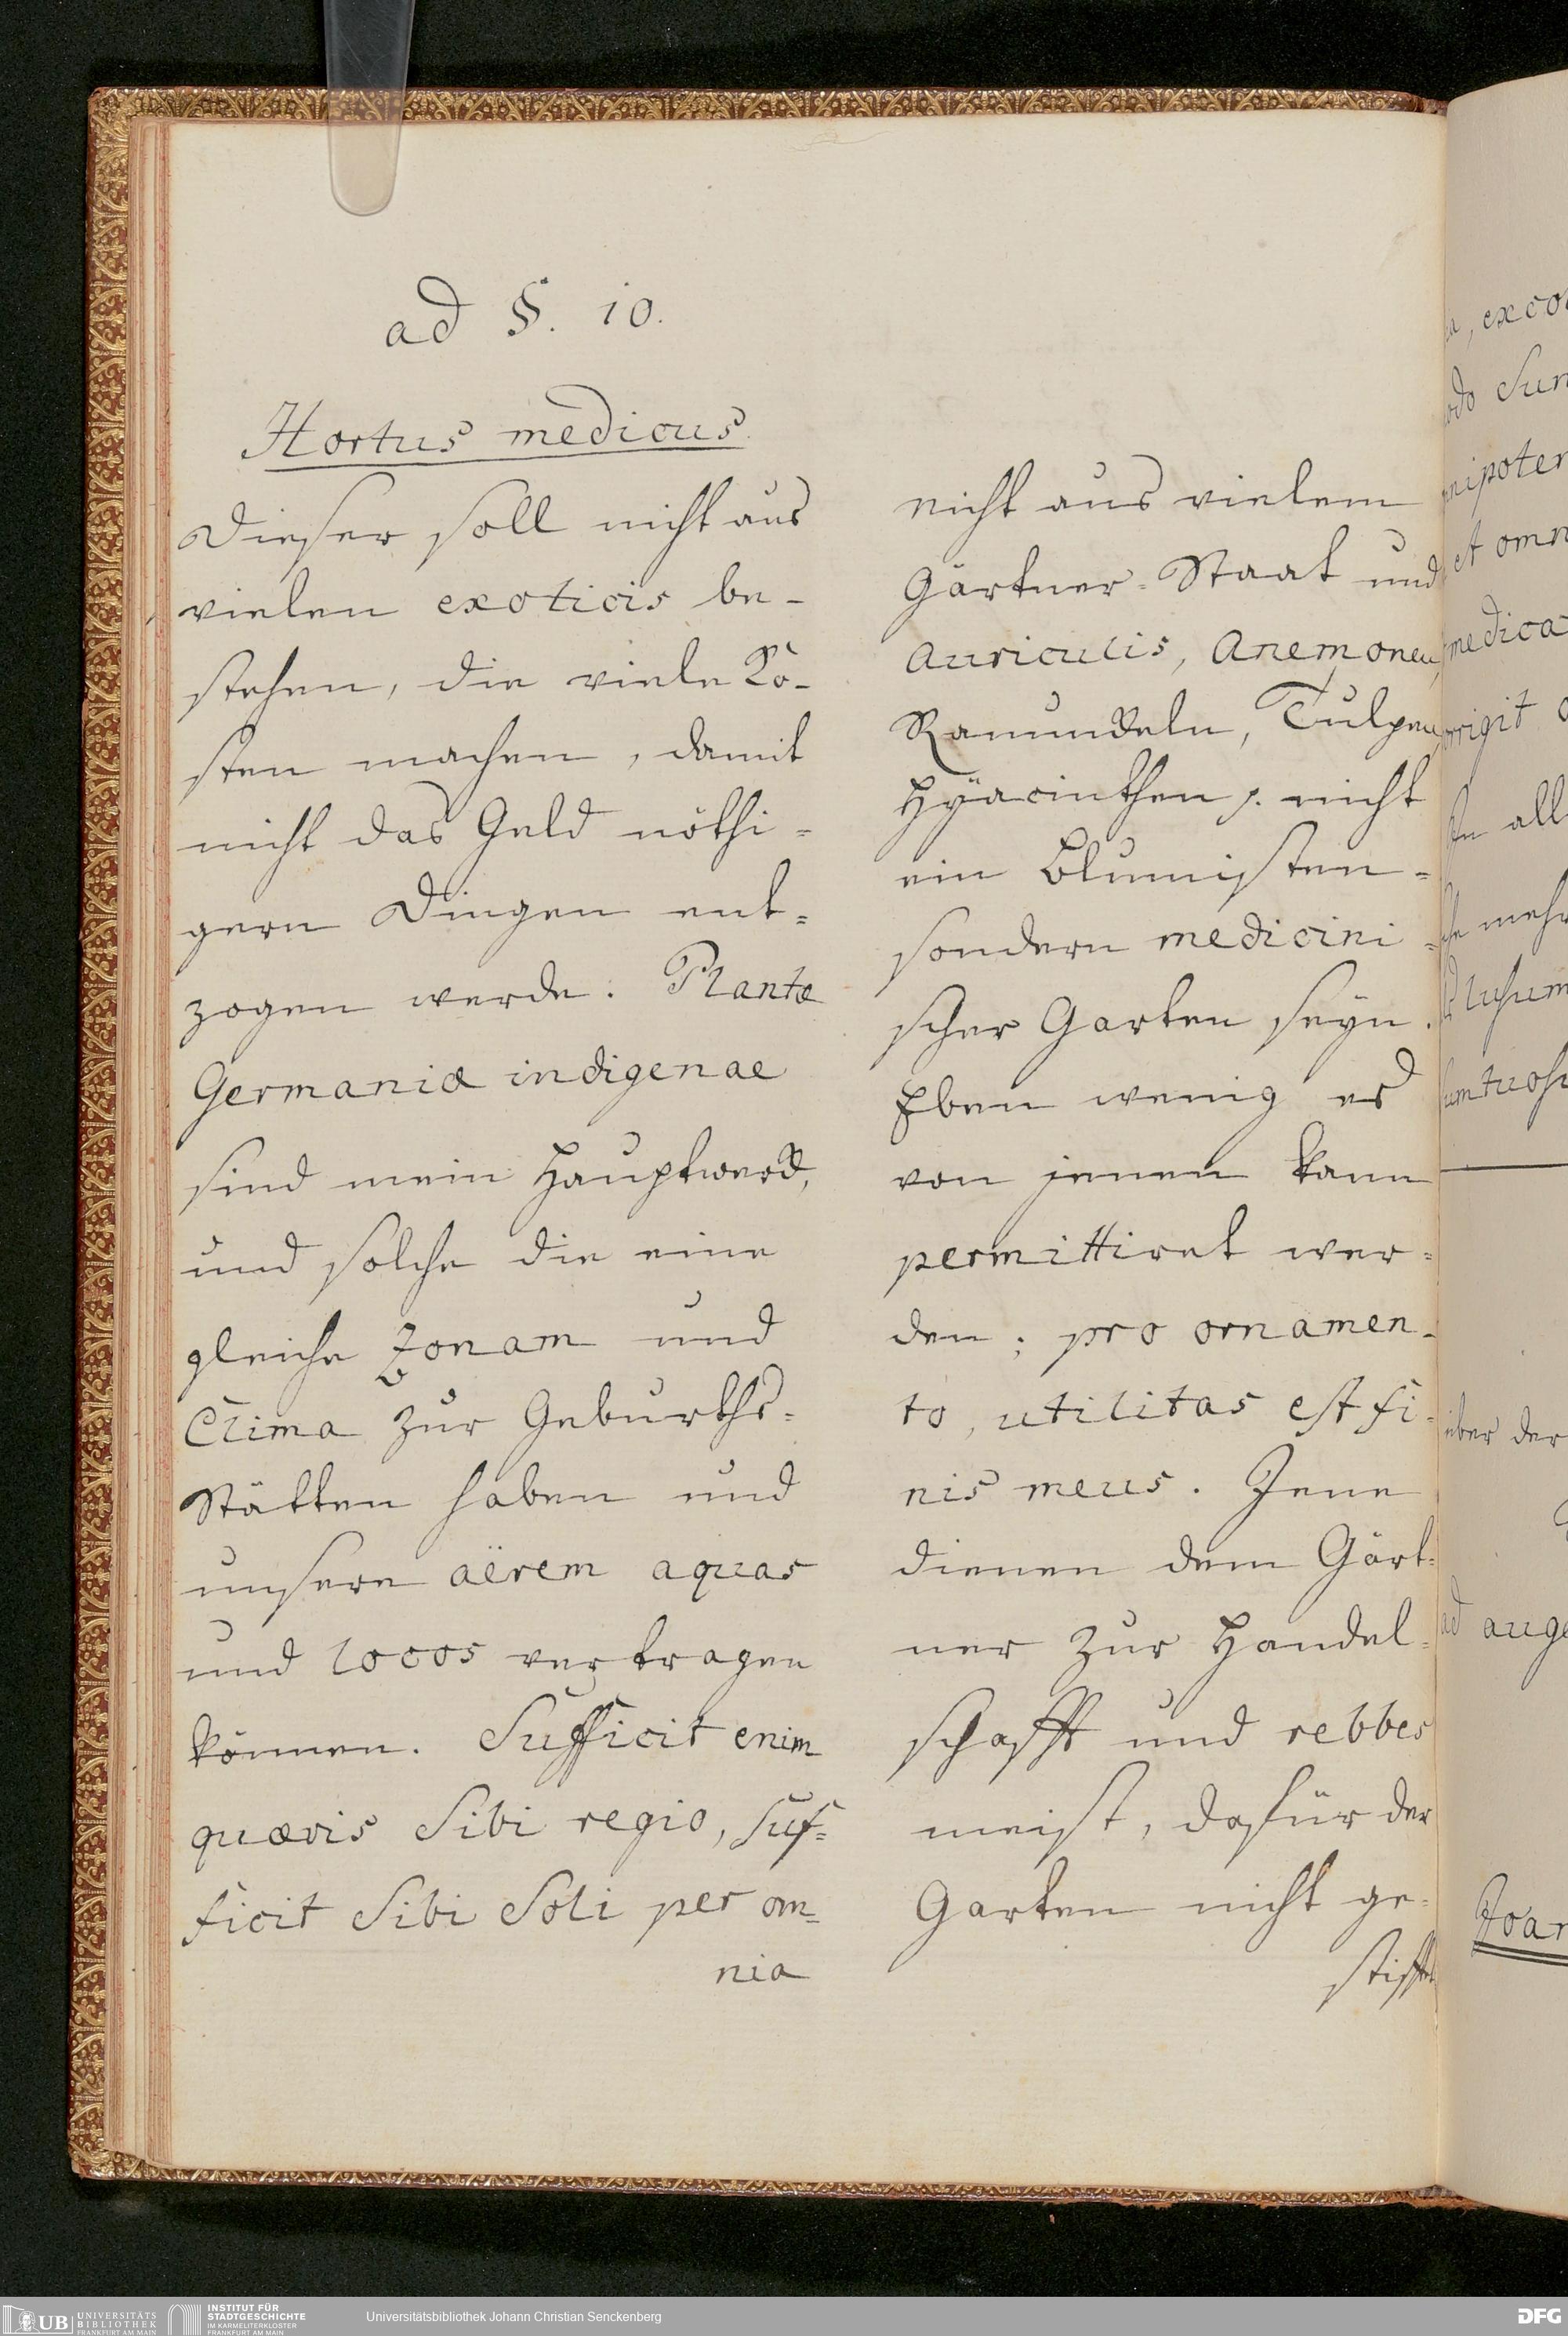 ad §. 10.
Hortus medicus.
Dieser soll nicht aus
vielen exoticis be-
stehen, die viele Ko-
sten machen, damit
nicht das Geld nöthi-
gern Dingen ent-
zogen werde. Plantæ
Germaniæ indigenae
sind mein Hauptwerck,
und solche die eine
gleiche Zonam und
Clima zur Geburths-
Stätten haben und
unsere aërem aquas
und locos vertragen
können. Sufficit enim
quævis sibi regio, suf-
ficit sibi soli per om-
nia
nicht aus vielem
Gärtner-Staat und
Auriculis, Anemonen,
Ranunckeln, Tulpen,
Hÿacinthen p. nicht
ein Blumisten-
sondern medicini-
scher Garten seyn.
Eben wenig es
von jenen kann
permittiret wer-
den; pro ornamen-
to, utilitas est fi-
nis meus. Jene
dienen dem Gärt-
ner zur Handel-
schafft und rebbes
meist, dafür der
Garten nicht ge-
stifftet
UB UNIVERSITÄTS
BIBLIOTHEK
FRANKFURT AM MAIN
INSTITUT FÜR
STADTGESCHICHTE
IM KARMELITERKLOSTER
FRANKFURT AM MAIN
Universitätsbibliothek Johann Christian Senckenberg
DFG